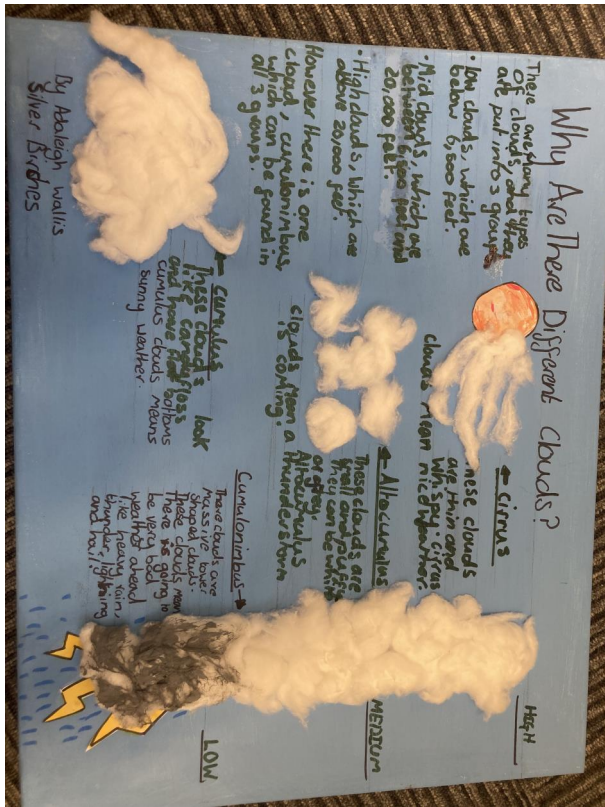 Why Are There Different Clouds?
There are many types
of clouds, and they
are put into 3 groups
• low clouds, which are
below 6,500 feet.
• Mid clouds, which are
between 6,500 feet and
20,000 feet.
• High clouds, which are
above 20,000 feet.
However there is one
cloud, cumulonimbus,
which can be found in
all 3 groups.
By Adaleigh Wallis
Silver Birches
← Cirrus
These clouds
are thin and
whispy. Cirrus
clouds mean nice weather.
← Altocumulus
These clouds are
small and puffy
they can be white
or grey.
Altocumulus
clouds mean a thunderstorm
is coming.
← Cumulus
These clouds look
like candyfloss
and have flat bottoms
cumulus clouds means
sunny weather.
Cumulonimbus →
There clouds are
massive tower
shaped clouds.
These clouds mean
There is going to
be very bad
weather ahead
like heavy rain,
thunder, lightning
and hail.
HIGH
MEDIUM
LOW